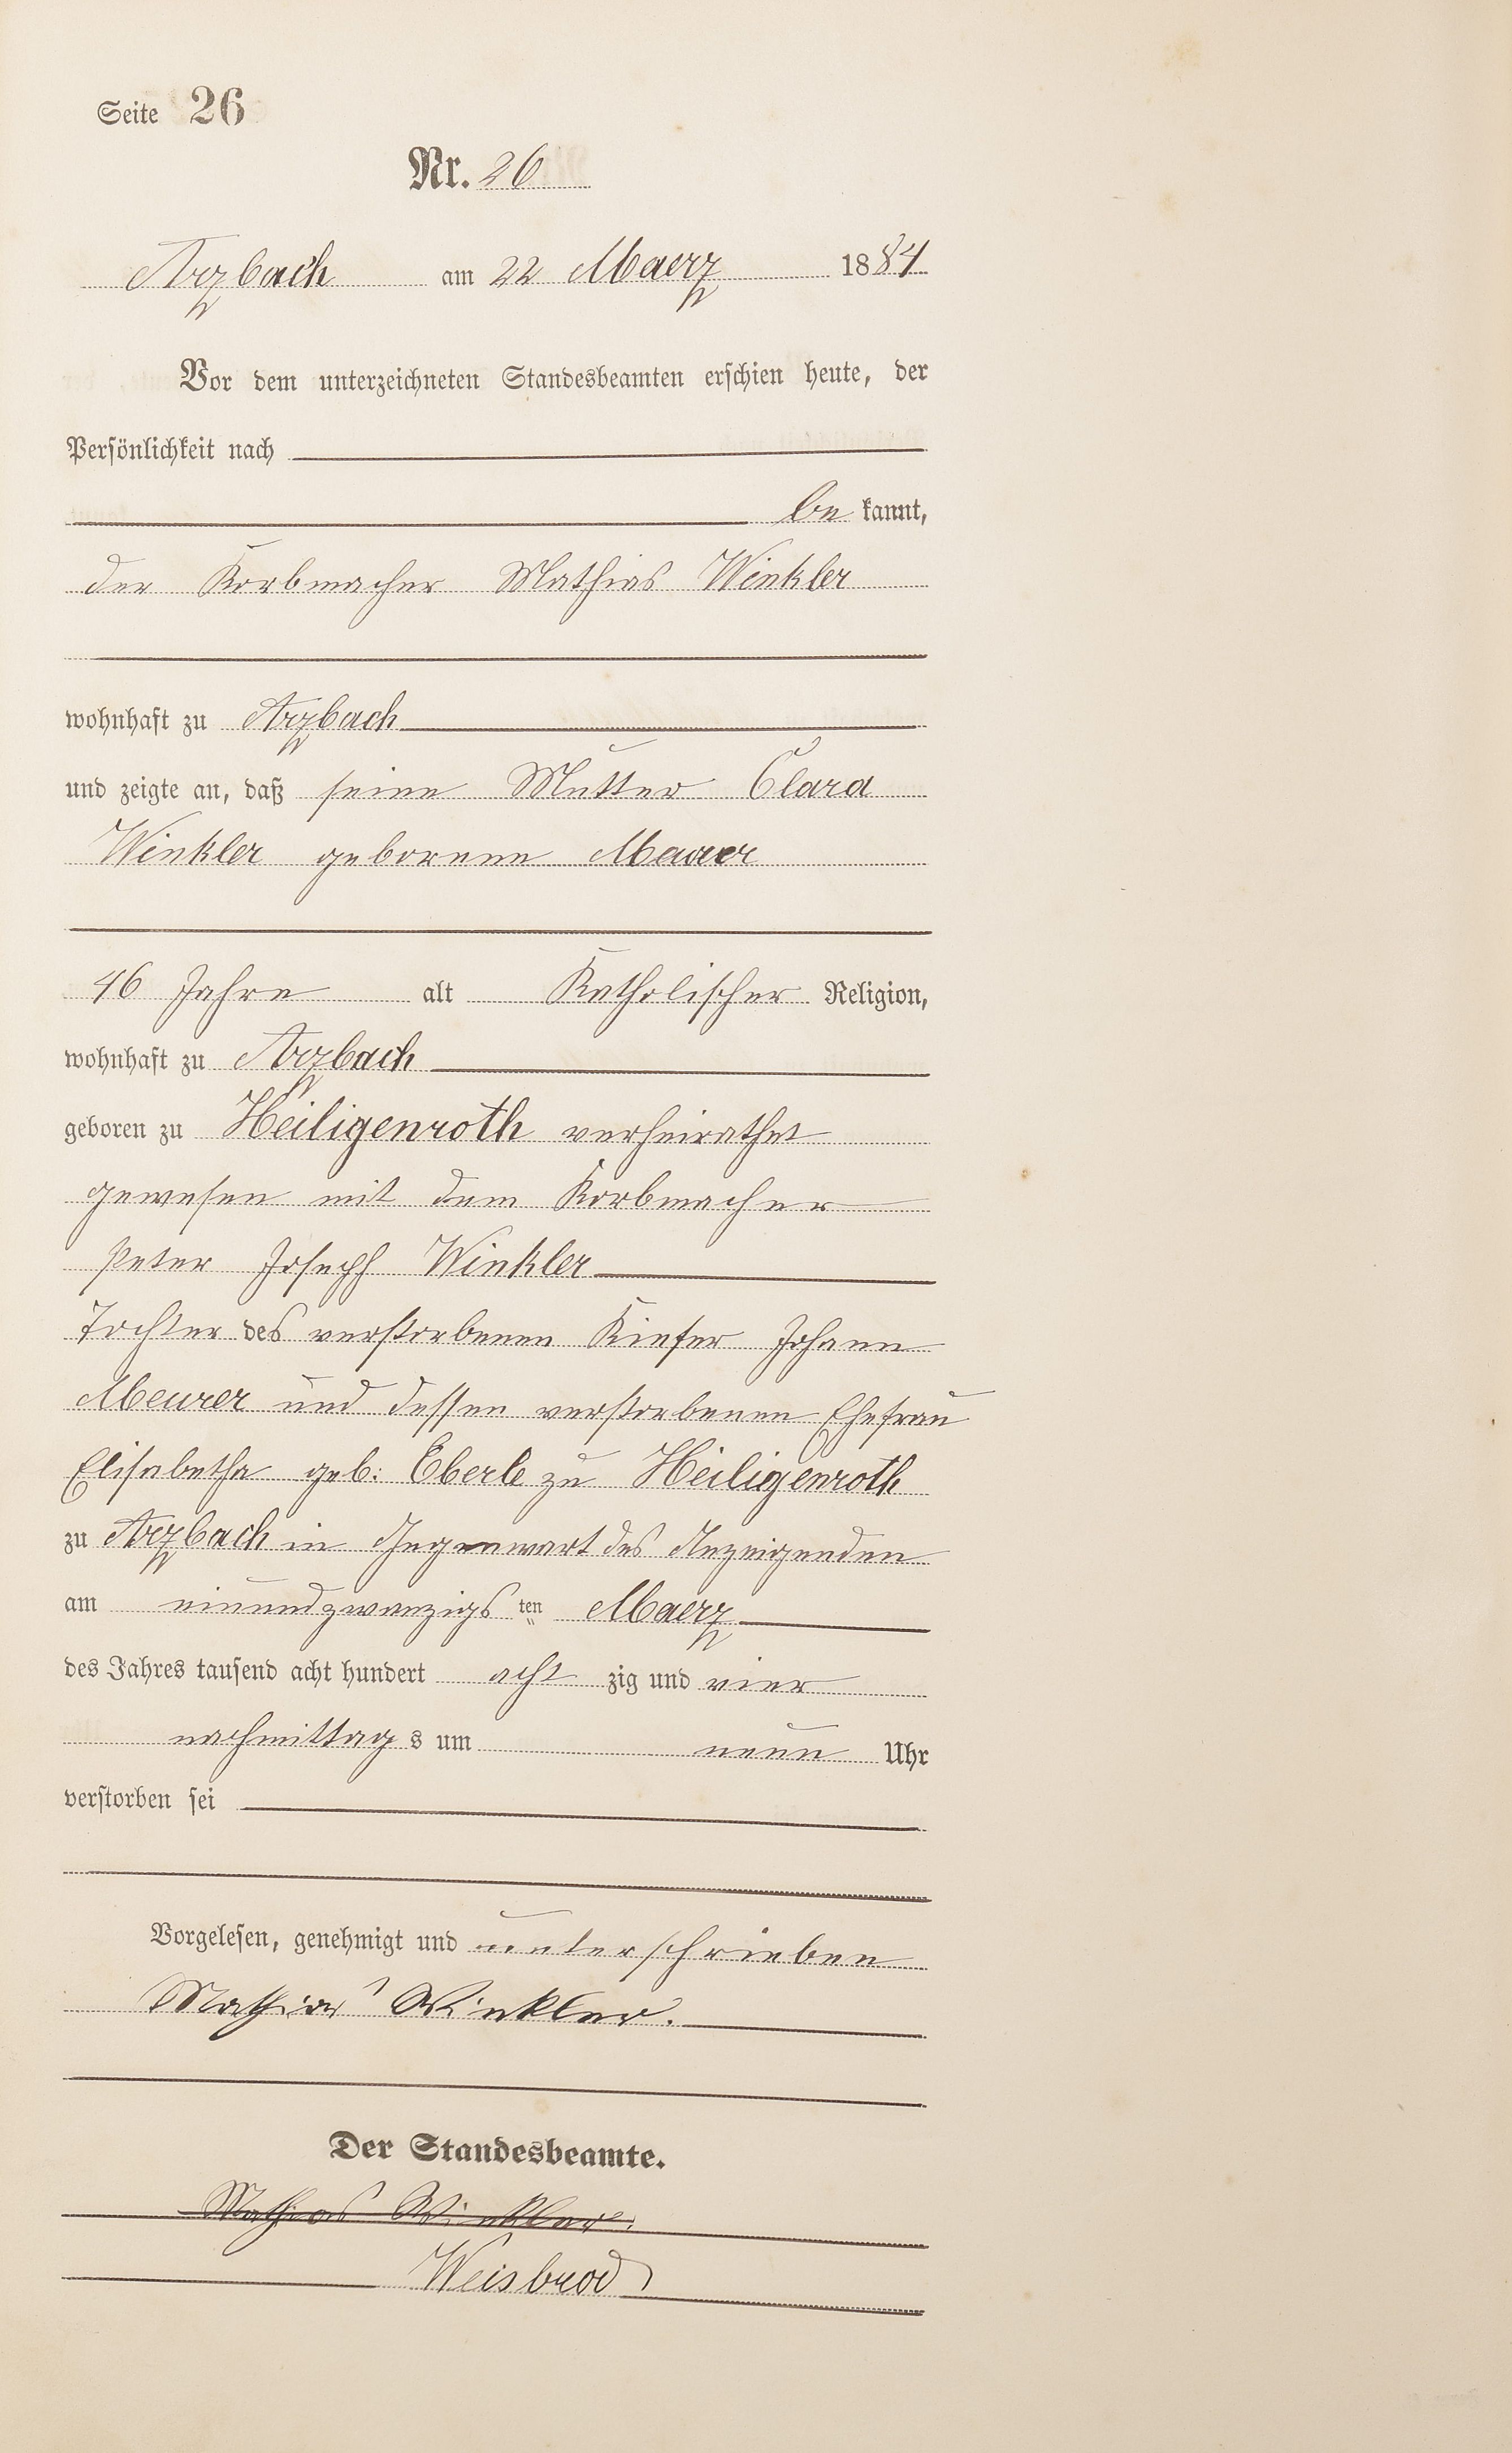 Seite 26
Nr. 26
Arzbach am 22 Maerz 1884
Vor dem unterzeichneten Standesbeamten erschien heute, der
Persönlichkeit nach
be kannt,
der Korbmacher Mathias Winkler
wohnhaft zu Arzbach
und zeigte an, daß seine Mutter Clara
Winkler geborene Meurer
46 Jahre alt Katholischer Religion,
wohnhaft zu Arzbach
geboren zu Heiligenroth verheirathet
gewesen mit dem Korbmacher
Peter Joseph Winkler
Tochter des verstorbenen Kiefer Johann
Meurer und dessen verstorbenen Ehefrau
Elisabetha geb: Eberle zu Heiligenroth
zu Arzbach in Gegenwart des Anzeigenden
am einundzwanzigs ten Maerz
des Jahres tausend acht hundert acht zig und vier
nachmittag s um neun Uhr
verstorben sei
Vorgelesen, genehmigt und unterschrieben
Mathias Winkler.
Der Standesbeamte.
Mathias Winkler.
Weisbrod